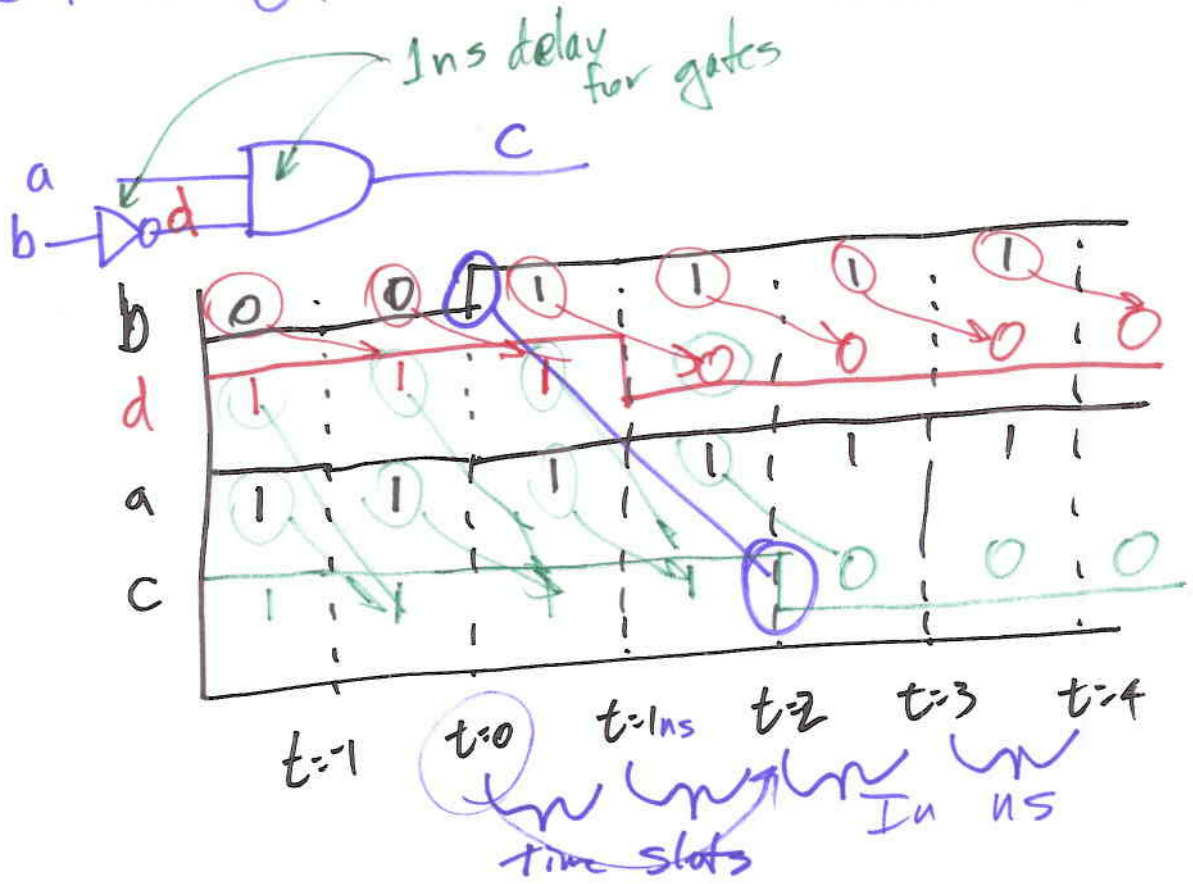 1ns delay
for gates
a
c
b
d
b 0 0 1 1 1 1
0 0 0 0
d 1 1 1
a 1 1 1 1 1 1
c 1 1 1 1 0 0 0
t=-1 t=0 t=1ns t=2 t=3 t=4
In ns
time slots